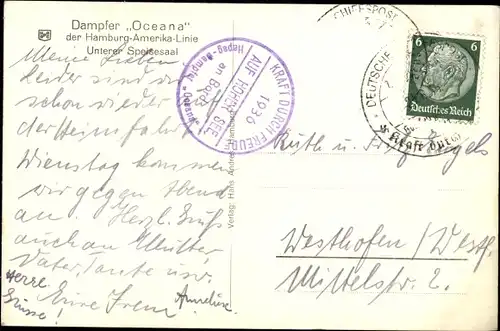 Dampfer „Oceana"
der Hamburg-Amerika-Linie
Unterer Speisesaal
Meine Lieben!
Leider sind wir
schon wieder auf
der Heimfahrt.
Dienstag kommen
wir gegen Abend
an. Herzl. Grüße
auch an Mutter,
Vater, Tante usw.
Eure Irene
Anneliese
Grüsse!
KRAFT DURCH FREUDE
1936
AUF HOHER SEE
an Bord
Hapag-Dampfer „Oceana"
Verlag: Hans Andres, Hamburg
DEUTSCHE
SCHIFFSPOST
Kraft durch
6
6
Deutsches Reich
Ruth u. Engels
Westhofen/Westf.
Mittelstr. 2.